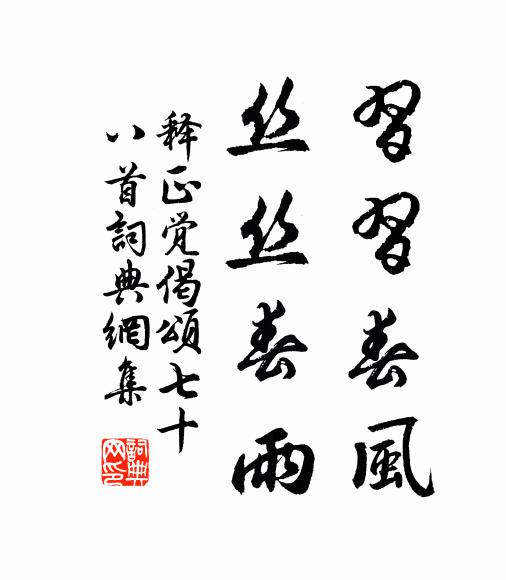 習習春風
丝丝春雨
释正觉偈頌七十
八首詞典網集
詞典
网印